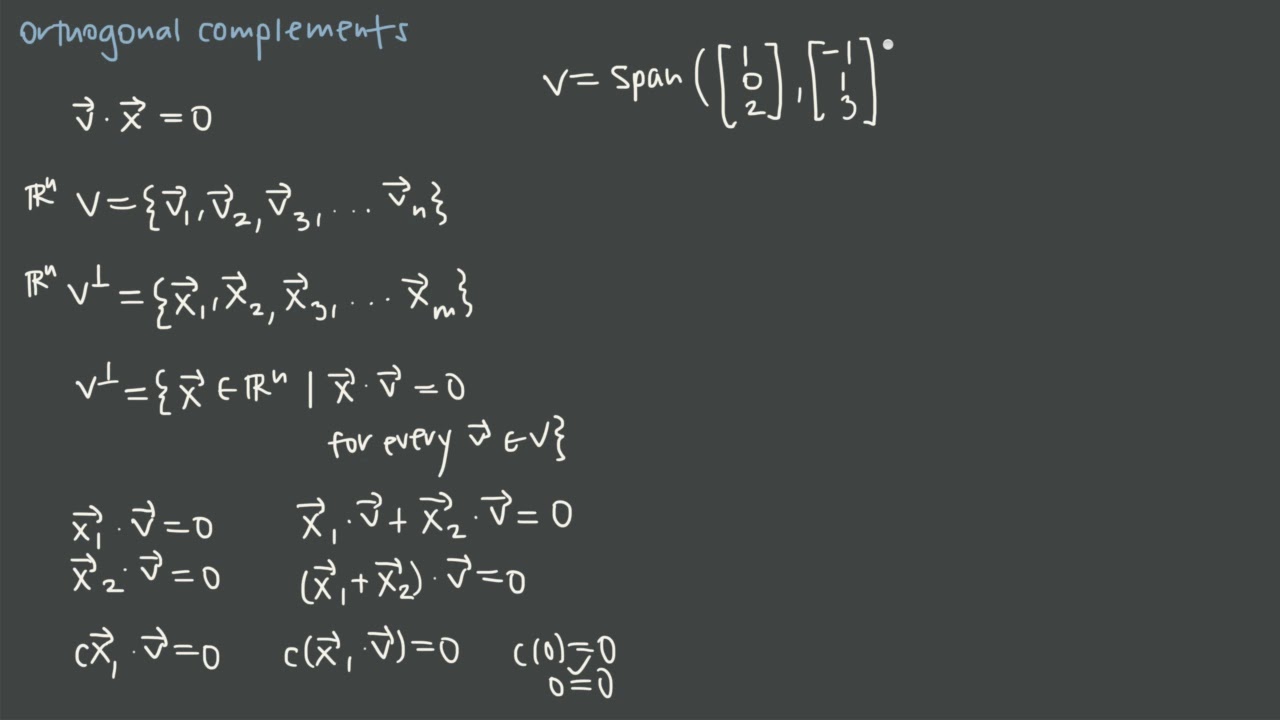 orthogonal complements
v⃗ · x⃗ = 0
ℝⁿ V = {v⃗₁, v⃗₂, v⃗₃, ... v⃗ₙ}
ℝⁿ V⊥ = {x⃗₁, x⃗₂, x⃗₃, ... x⃗ₘ}
V⊥ = {x⃗ ∈ ℝⁿ | x⃗ · v⃗ = 0
for every v⃗ ∈ V}
x⃗₁ · v⃗ = 0
x⃗₂ · v⃗ = 0
x⃗₁ · v⃗ + x⃗₂ · v⃗ = 0
(x⃗₁ + x⃗₂) · v⃗ = 0
cx⃗₁ · v⃗ = 0
c(x⃗₁ · v⃗) = 0
c(0) = 0
0 = 0 ✓
V = Span ([1 0 2], [-1 1 3]